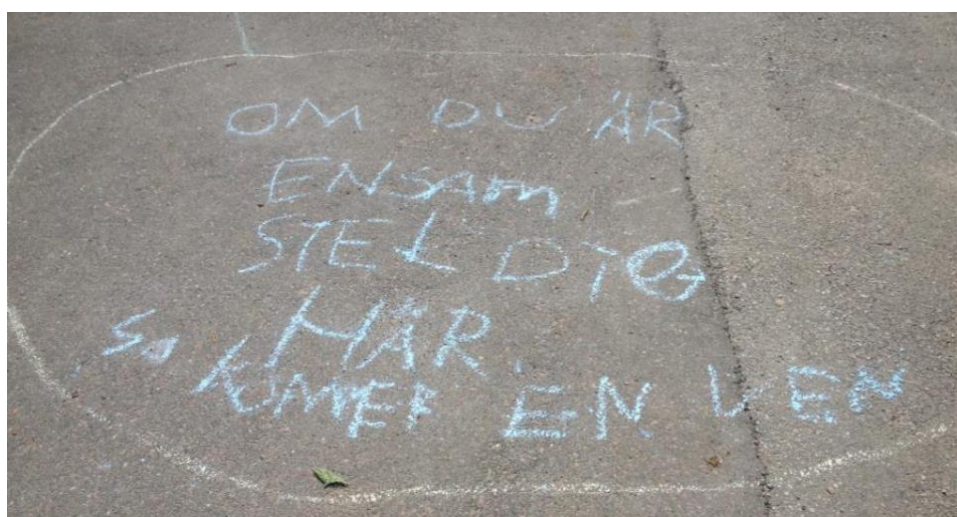 OM DU ÄR
ENSAM
STEL DIG
HÄR.
SÅ KOMMER EN VEN